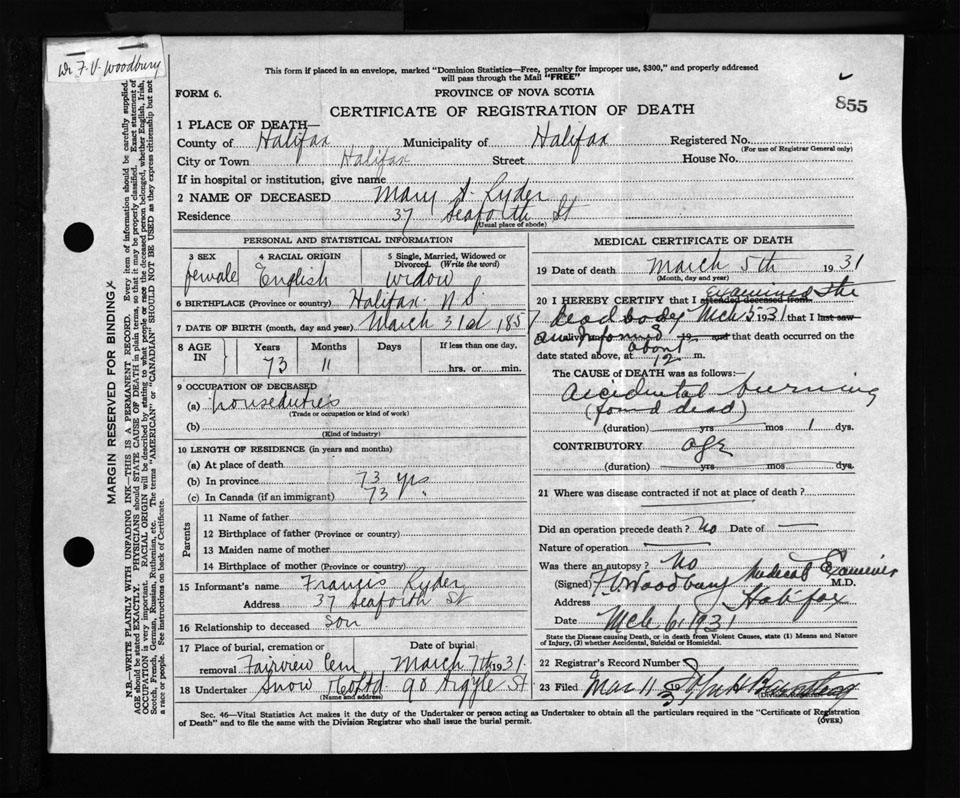 Dr F. V. Woodbury
This form if placed in an envelope, marked "Dominion Statistics—Free, penalty for improper use, $300," and properly addressed
will pass through the Mail "FREE"
FORM 6.
PROVINCE OF NOVA SCOTIA
855
CERTIFICATE OF REGISTRATION OF DEATH
1 PLACE OF DEATH—
County of Halifax Municipality of Halifax Registered No.
(For use of Registrar General only)
City or Town Halifax Street House No.
If in hospital or institution, give name
2 NAME OF DECEASED Mary A. Ryder
Residence 37 Seaforth St
(Usual place of abode)
PERSONAL AND STATISTICAL INFORMATION
3 SEX 4 RACIAL ORIGIN 5 Single, Married, Widowed or
Divorced. (Write the word)
female English widow
6 BIRTHPLACE (Province or country) Halifax N.S.
7 DATE OF BIRTH (month, day and year) March 31st 1857
8 AGE IN Years Months Days If less than one day,
73 11 hrs. or min.
9 OCCUPATION OF DECEASED
(a) houseduties
(Trade or occupation or kind of work)
(b)
(Kind of industry)
10 LENGTH OF RESIDENCE (in years and months)
(a) At place of death
(b) In province 73 yrs
(c) In Canada (if an immigrant) 73 "
Parents
11 Name of father
12 Birthplace of father (Province or country)
13 Maiden name of mother
14 Birthplace of mother (Province or Country)
15 Informant's name Francis Ryder
Address 37 Seaforth St
16 Relationship to deceased son
17 Place of burial, cremation or Date of burial:
removal Fairview Cem March 7th 1931
18 Undertaker Snow & Co Ltd 90 Argyle St
(Name and address)
MEDICAL CERTIFICATE OF DEATH
19 Date of death March 5th 1931
(Month, day and year)
20 I HEREBY CERTIFY that I attended deceased from examined the
dead body Mch 5 1931 that I last saw
am informed 19 and that death occurred on the
date stated above, at about 12 m.
The CAUSE of DEATH was as follows:—
accidental burning
(found dead)
(duration) yrs mos 1 dys.
CONTRIBUTORY age
(duration) yrs mos dys.
21 Where was disease contracted if not at place of death?
Did an operation precede death? No Date of —
Nature of operation —
Was there an autopsy? No
(Signed) F. V. Woodbury Medical Examiner M.D.
Address Halifax
Date Mch 6 1931
State the Disease causing Death, or in death from Violent Causes, state (1) Means and Nature
of Injury, (2) whether Accidental, Suicidal or Homicidal.
22 Registrar's Record Number
23 Filed Mar 11 31
Sec. 46—Vital Statistics Act makes it the duty of the Undertaker or person acting as Undertaker to obtain all the particulars required in the "Certificate of Registration
of Death" and to file the same with the Division Registrar who shall issue the burial permit.
(OVER)
MARGIN RESERVED FOR BINDING
N.B.—WRITE PLAINLY WITH UNFADING INK—THIS IS A PERMANENT RECORD. Every item of information should be carefully supplied.
AGE should be stated EXACTLY. PHYSICIANS should STATE CAUSE OF DEATH in plain terms, so that it may be properly classified. Exact statement of
OCCUPATION is very important. RACIAL ORIGIN will be described by stating to what people or race the deceased person belonged, whether English, Irish,
Scotch, French, German, Russian, Ruthenian, etc. The terms "AMERICAN" or "CANADIAN" SHOULD NOT BE USED as they express citizenship but not
a race or people. See instructions on back of Certificate.